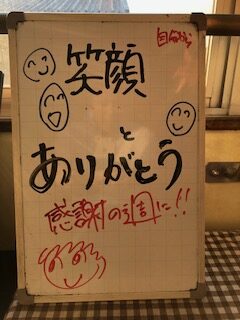 自分から
笑顔
と
ありがとう
感謝の週に!!